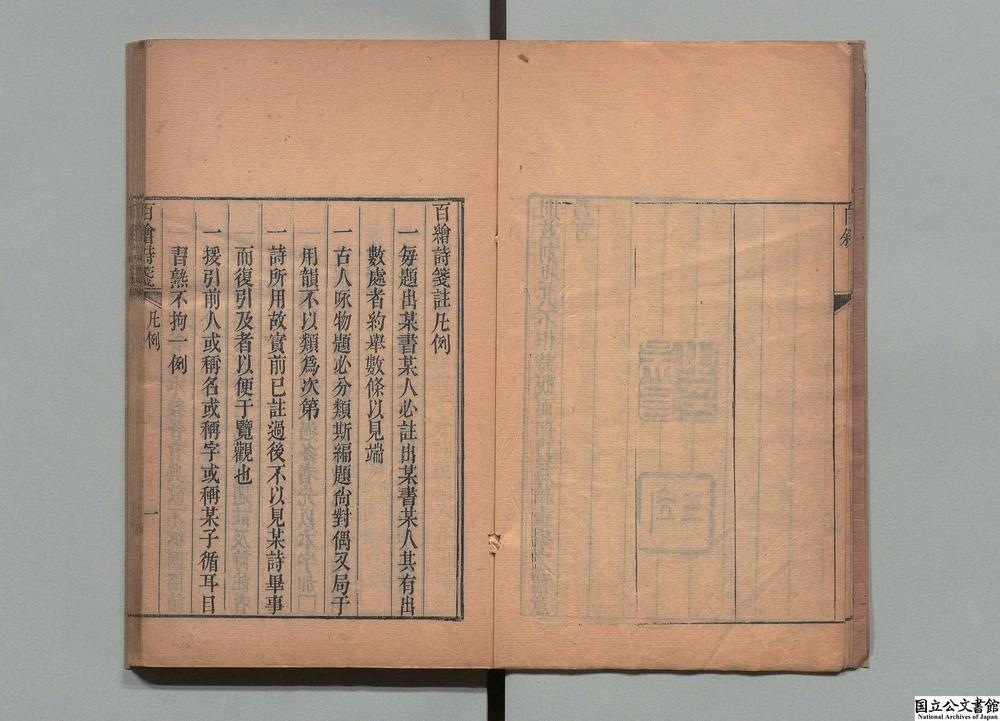 百繪詩箋註凡例
一每題出某書某人必註出某書某人其有出
數處者約舉數條以見端
一古人咏物題必分類斯編題尙對偶又局于
用韻不以類爲次第
一詩所用故實前已註過後不以見某詩畢事
而復引及者以便于覽觀也
一援引前人或稱名或稱字或稱某子循耳目
習熟不拘一例
百繪詩箋
凡例
一
国立公文書館
National Archives of Japan